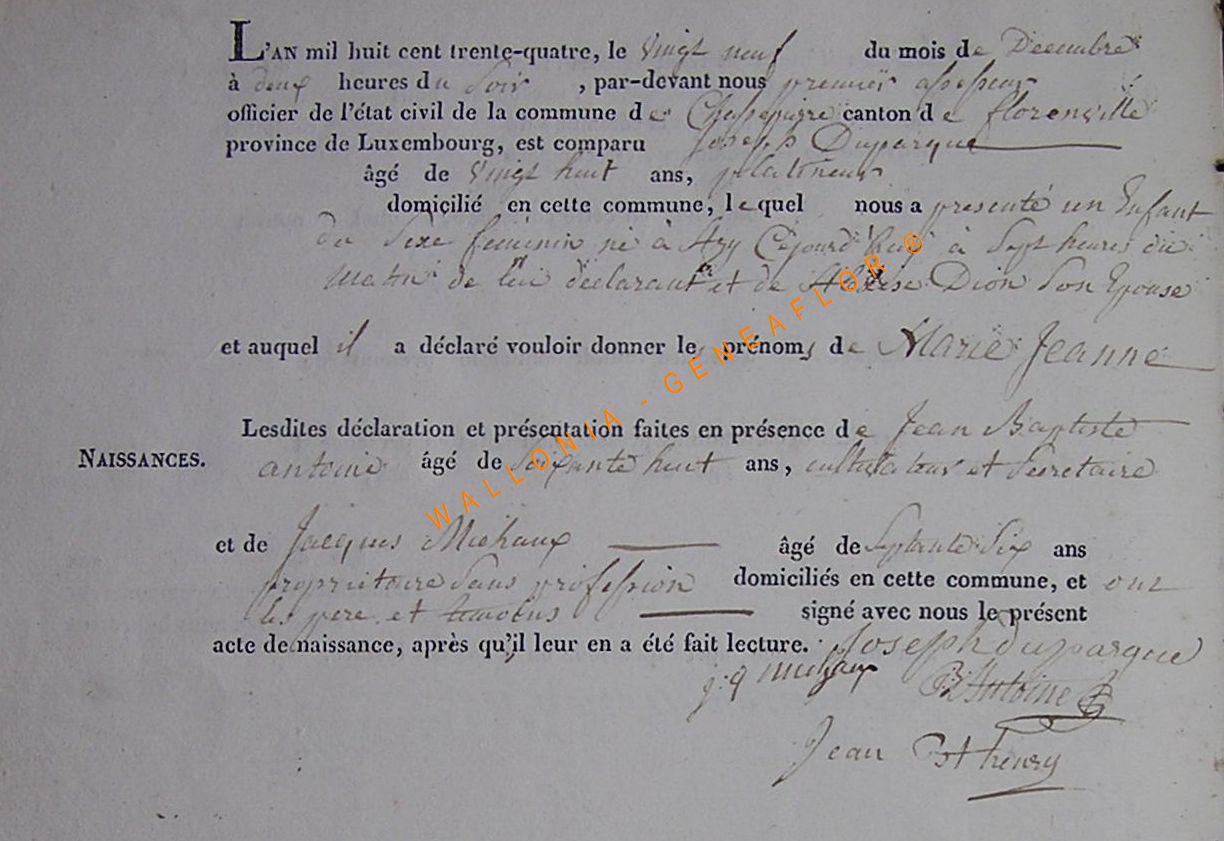 L'AN mil huit cent trente-quatre, le vingt neuf du mois de Decembre
à deux heures du Soir, par-devant nous premier assesseur
officier de l'état civil de la commune de Chassepierre canton de florenville
province de Luxembourg, est comparu Joseph Duparque
âgé de vingt huit ans, platineur
domicilié en cette commune, lequel nous a presenté un Enfant
du Sexe feminin né à Azy Cejourd'huy à Sept heures du
matin de lui déclarant et de Therese Dion Son Epouse
et auquel il a déclaré vouloir donner les prénoms de Marie Jeanne
Lesdites déclaration et présentation faites en présence de Jean Baptiste
NAISSANCES.
antoine âgé de Soixante huit ans, cultivateur et Secretaire
et de Jacques Michaux âgé de Septante Six ans
proprietaire Sans profession domiciliés en cette commune, et ont
les pere et temoins signé avec nous le présent
acte de naissance, après qu'il leur en a été fait lecture. Joseph duparque
j. q michaux B Antoine
Jean Bt henry
WALLONIA - GENEAFLOR ®